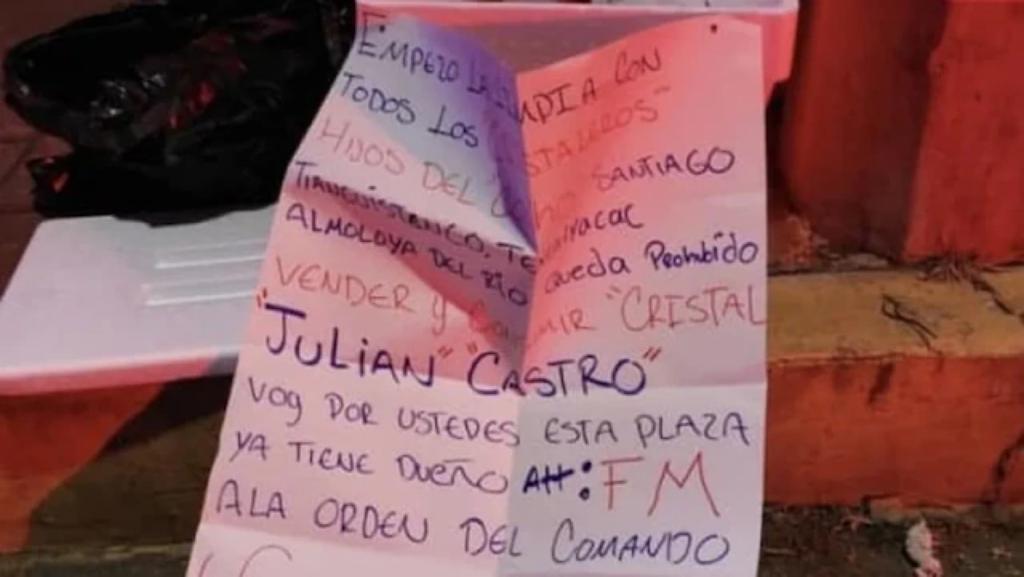 EMPEZO LA CON
TODOS LOS
HIJOS DEL SANTIAGO
TIANGUISTENCO,
ALMOLOYA DEL RÍO QUEDA PROHIBIDO
VENDER Y "CRISTAL
"JULIAN" "CASTRO"
VOY POR USTEDES ESTA PLAZA
YA TIENE DUEÑO Att: FM
ALA ORDEN DEL COMANDO